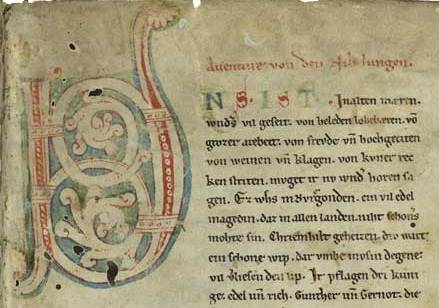 Auenture von den Nibelungen.
VNS IST. In alten mæren.
wnds vil geseit. von heleden lobebæren. vō
grozer arebeit. von frevde vn̄ hochgeciten
von weinen vn̄ klagen. von kvner rec
ken striten. mvget ir nv wnd horen sa
gen. Ez whs in Bvrgonden. ein vil edel
magedin. daz in allen landen. niht schoners
mohte sin. Chriemhilt geheizen. div wart
ein schone wip. dar vmbe mvsin degene
vil verliesen den lip. Ir pflagen dri kuni
ge. edel vn̄ rich. Gunther vn̄ Gernot. die